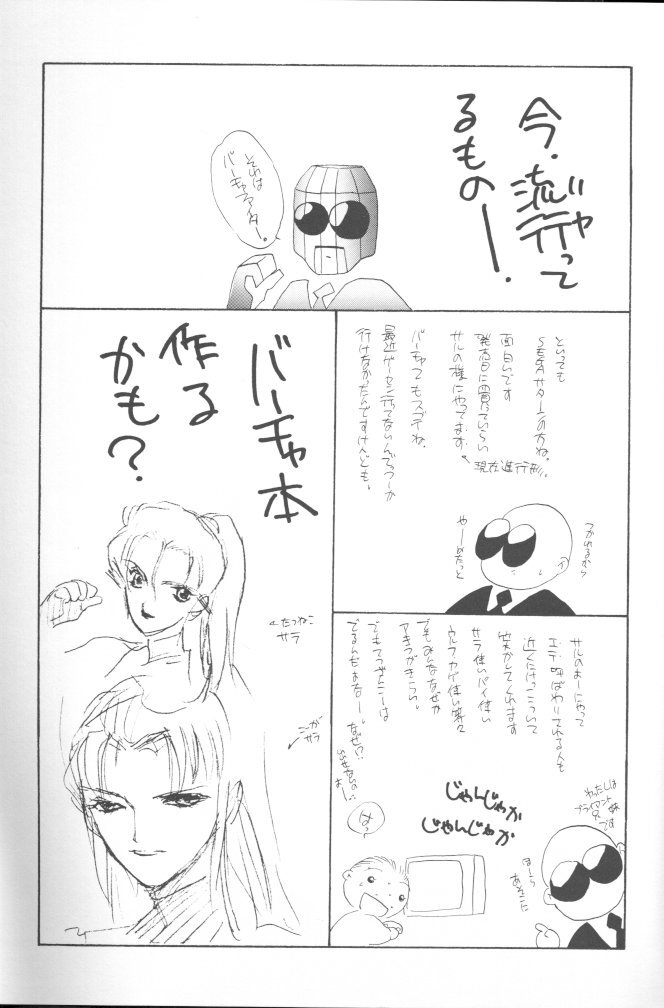 今、流行って
ジャ
るものー!
それは
バーチャファイター。
といっても
SEGAサターンの方ね。
面白いです
発売日に買っていらい
サルの様にやってます。
現在進行形。
バーチャでもスゴイね。
最近ゲーセン行ってないんでつーか
行けなかったんですけども。
つかれるから
やーめたっと
バーチャ本
作る
かも?
←たつねこ
サラ
こが
サラ
サルのよーにやって
エテ呼ばわりされる人も
近くにけっこういて
笑かしてくれます
サラ使いパイ使い
ウルフカゲ使い等々
でもみんななぜか
アキラがきらい。
でもてつざんこーは
でるんだよなー。なぜ?
じゃんじゃか
じゃんじゃか
はっ
わたしは
ブライアント
です
ほーら
あそこだ